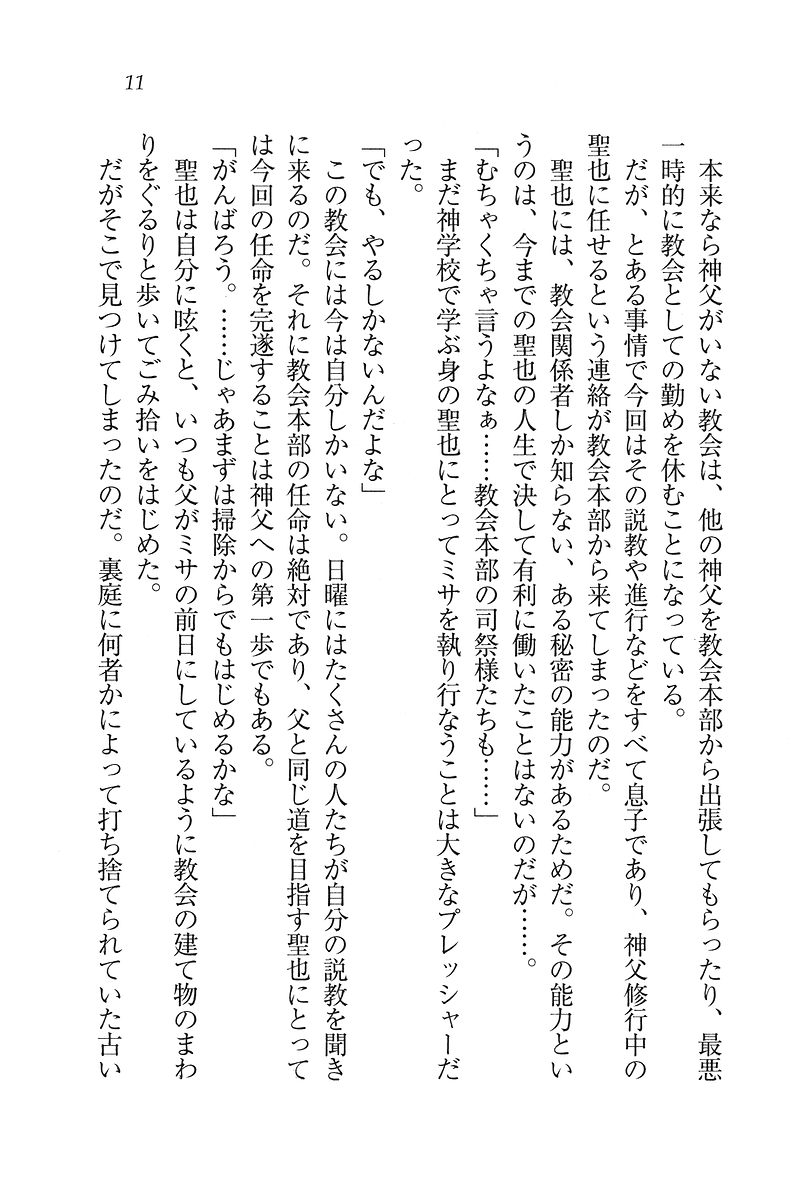 11
本来なら神父がいない教会は、他の神父を教会本部から出張してもらったり、最悪
一時的に教会としての勤めを休むことになっている。
だが、とある事情で今回はその説教や進行などをすべて息子であり、神父修行中の
聖也に任せるという連絡が教会本部から来てしまったのだ。
聖也には、教会関係者しか知らない、ある秘密の能力があるためだ。その能力とい
うのは、今までの聖也の人生で決して有利に働いたことはないのだが……。
「むちゃくちゃ言うよなぁ……教会本部の司祭様たちも……」
まだ神学校で学ぶ身の聖也にとってミサを執り行なうことは大きなプレッシャーだ
った。
「でも、やるしかないんだよな」
この教会には今は自分しかいない。日曜にはたくさんの人たちが自分の説教を聞き
に来るのだ。それに教会本部の任命は絶対であり、父と同じ道を目指す聖也にとって
は今回の任命を完遂することは神父への第一歩でもある。
「がんばろう。……じゃあまずは掃除からでもはじめるかな」
聖也は自分に呟くと、いつも父がミサの前日にしているように教会の建て物のまわ
りをぐるりと歩いてごみ拾いをはじめた。
だがそこで見つけてしまったのだ。裏庭に何者かによって打ち捨てられていた古い